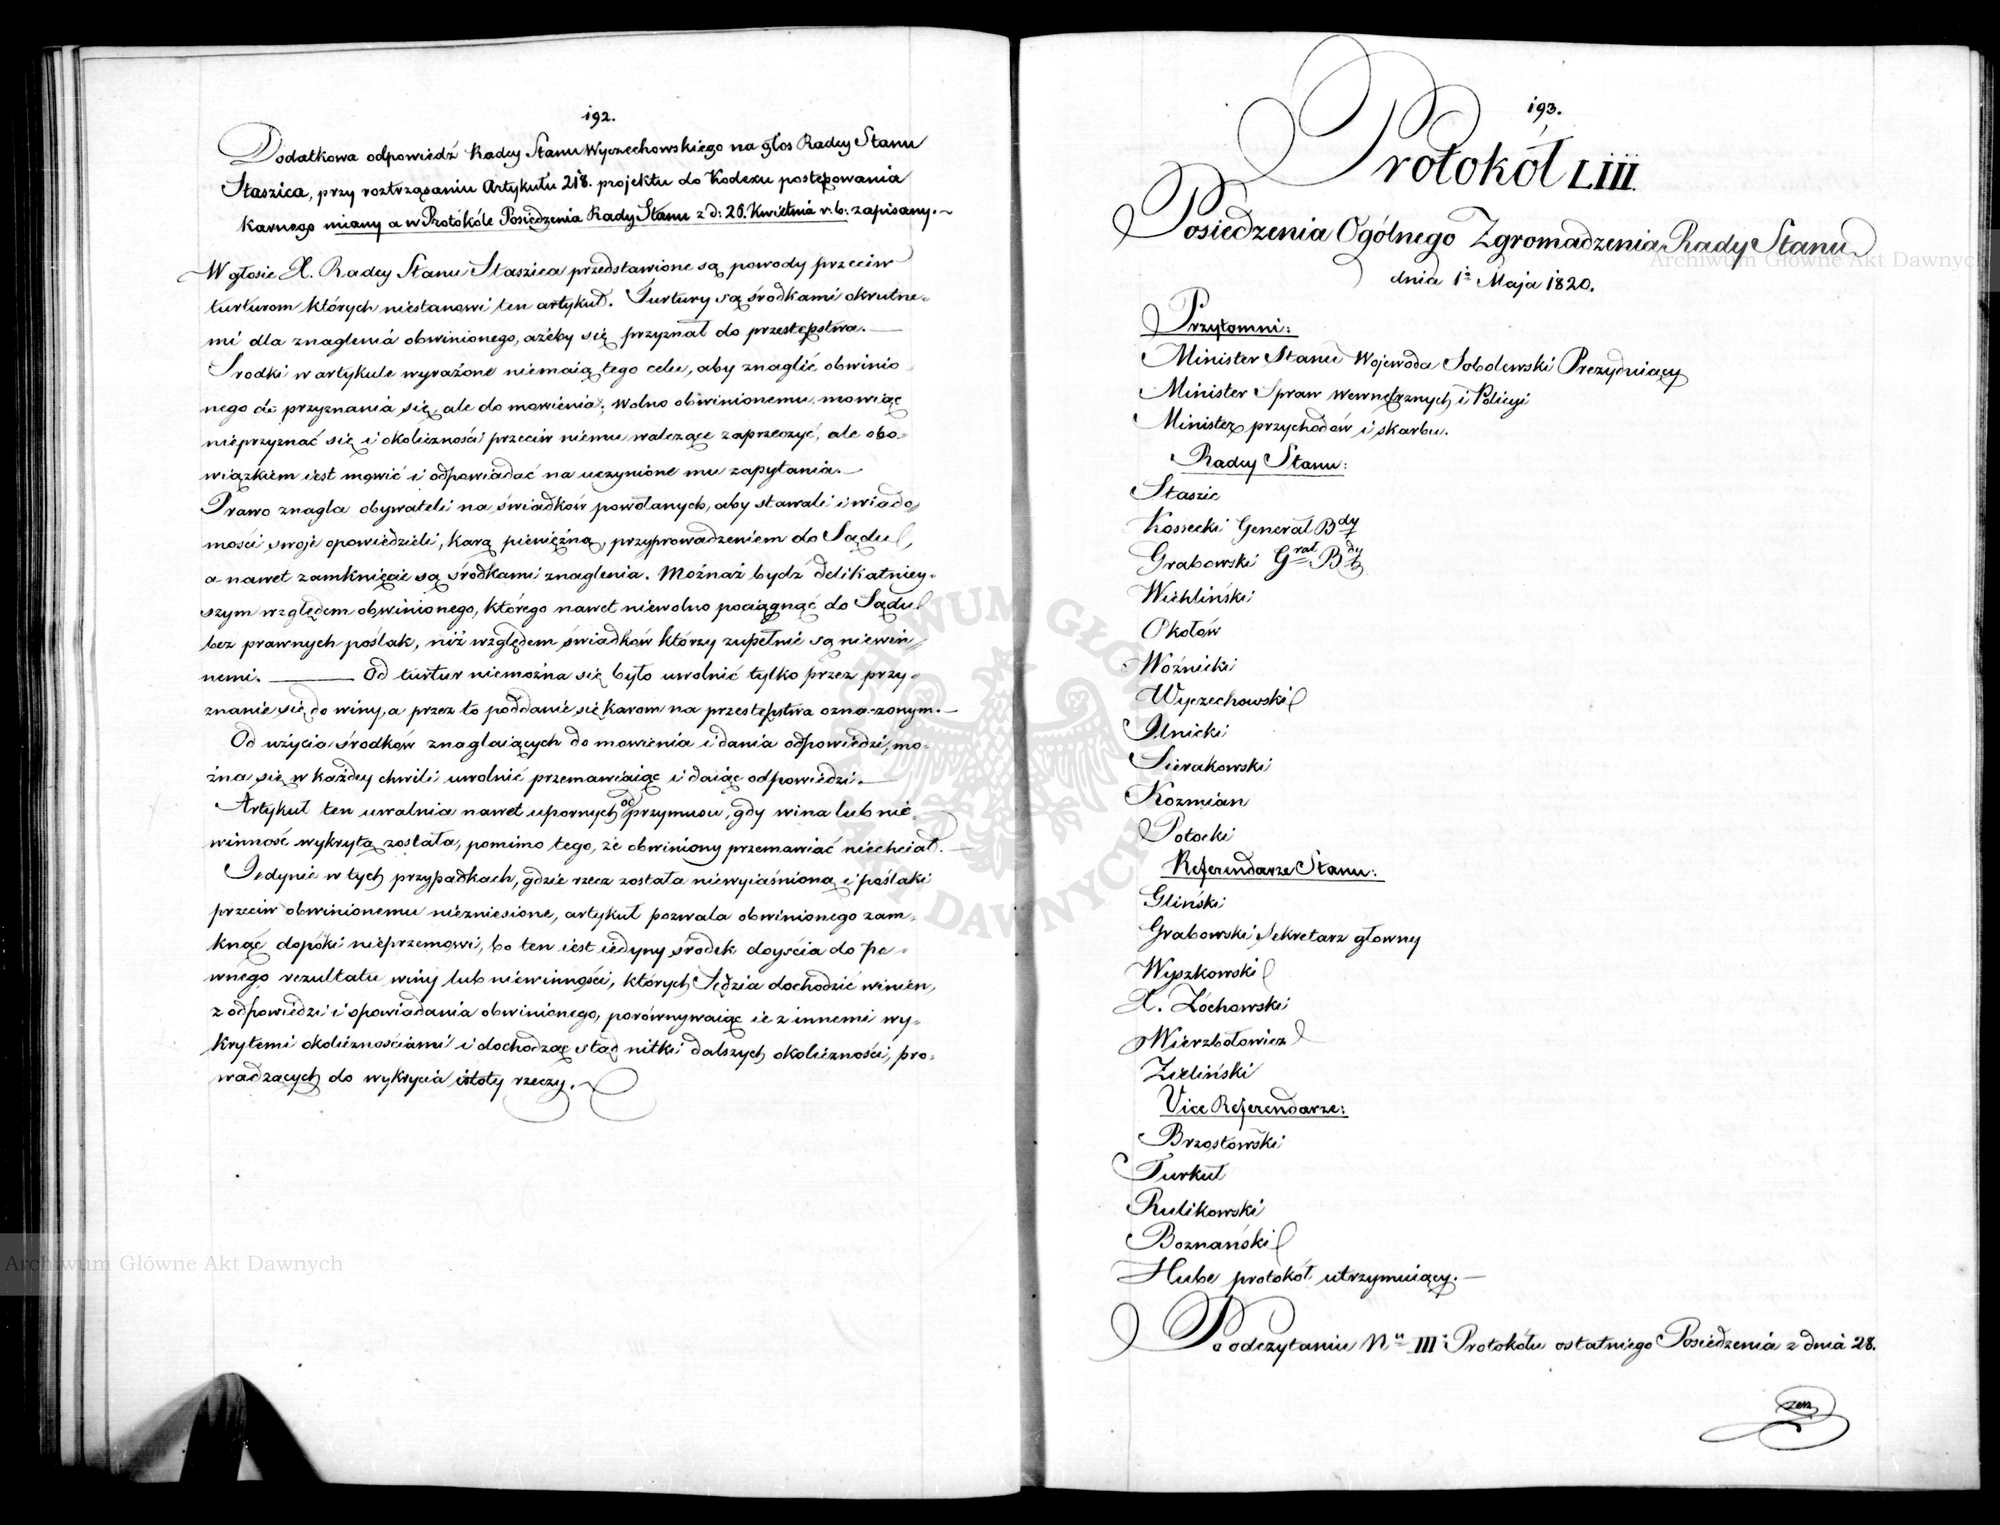 192.
Dodatkowa odpowiedź Radcy Stanu Wyczechowskiego na głos Radcy Stanu
Staszica, przy roztrząsaniu Artykułu 218. projektu do Kodexu postępowania
Karnego miany a w Protokóle Posiedzenia Rady Stanu z d: 26. Kwietnia r. b: zapisany.~
W głosie X. Radcy Stanu Staszica przedstawione są powody przeciw
turturom których niestanowi ten artykuł. Turtury są środkami okrutne-
mi dla znaglenia obwinionego, ażeby się przyznał do przestępstwa.—
Srodki w artykule wyrażone niemaią tego celu, aby znaglić obwinio-
nego do przyznania się, ale do mowienia; wolno obwinionemu mowiąc
nieprzyznać się i okoliczności przeciw niemu walczące zaprzeczyć, ale obo-
wiązkiem iest mowić i odpowiadać na uczynione mu zapytania.—
Prawo znagla obywateli na świadków powołanych, aby stawali i wiado-
mości swoje opowiedzieli, karą pieniężną, przyprowadzeniem do Sądu,
a nawet zamknięcie są środkami znaglenia. Możnaż bydź delikatniey-
szym względem obwinionego, którego nawet niewolno pociągnąć do Sądu
bez prawnych poślak, niż względem świadków którzy zupełnie są niewin-
nemi. ——— Od turtur niemożna się było uwolnić tylko przez przy-
znanie się do winy, a przez to poddanie się karom na przestępstwa oznaczonym.—
Od użycia środków znaglaiących do mowienia i dania odpowiedzi, mo-
żna się w każdey chwili uwolnić przemawiaiąc i daiąc odpowiedzi.—
Artykuł ten uwalnia nawet upornych od przymusu, gdy wina lub nie-
winność wykryta została, pomimo tego, że obwiniony przemawiać niechciał.—
Jedynie w tych przypadkach, gdzie rzecz została niewyiaśniona i poślaki
przeciw obwinionemu niezniesione, artykuł pozwala obwinionego zam-
knąć dopóki nieprzemowi, bo ten iest iedyny środek doyścia do pe-
wnego rezultatu winy lub niewinności, których Sędzia dochodzić winien,
z odpowiedzi i opowiadania obwinionego, porównywaiąc ie z innemi wy-
krytemi okolicznościami i dochodząc stąd nitki dalszych okoliczności, pro-
wadzących do wykrycia istoty rzeczy.~
193.
Protokół LIII.
Posiedzenia Ogólnego Zgromadzenia Rady Stanu
dnia 1º Maja 1820.
Przytomni:
Minister Stanu Wojewoda Sobolewski Prezyduiący
Minister Spraw Wewnętrznych i Policyi
Minister przychodów i skarbu.
Radcy Stanu:
Staszic
Kossecki Generał Bdy
Grabowski Grał Bdy
Wichliński
Okołów
Woźnicki
Wyczechowski
Ilnicki
Sierakowski
Kozmian
Potocki
Referendarze Stanu:
Gliński
Grabowski Sekretarz głowny
Wyszkowski
X. Żochowski
Wierzbołowicz
Zieliński
Vice Referendarze:
Brzostowski
Turkuł
Rulikowski
Boznański
Hube protokół utrzymuiący.—
Po odczytaniu Nu III Protokółu ostatniego Posiedzenia z dnia 28.
Archiwum Główne Akt Dawnych
Archiwum Główne Akt Dawnych
ARCHIWUM GŁÓWNE AKT DAWNYCH